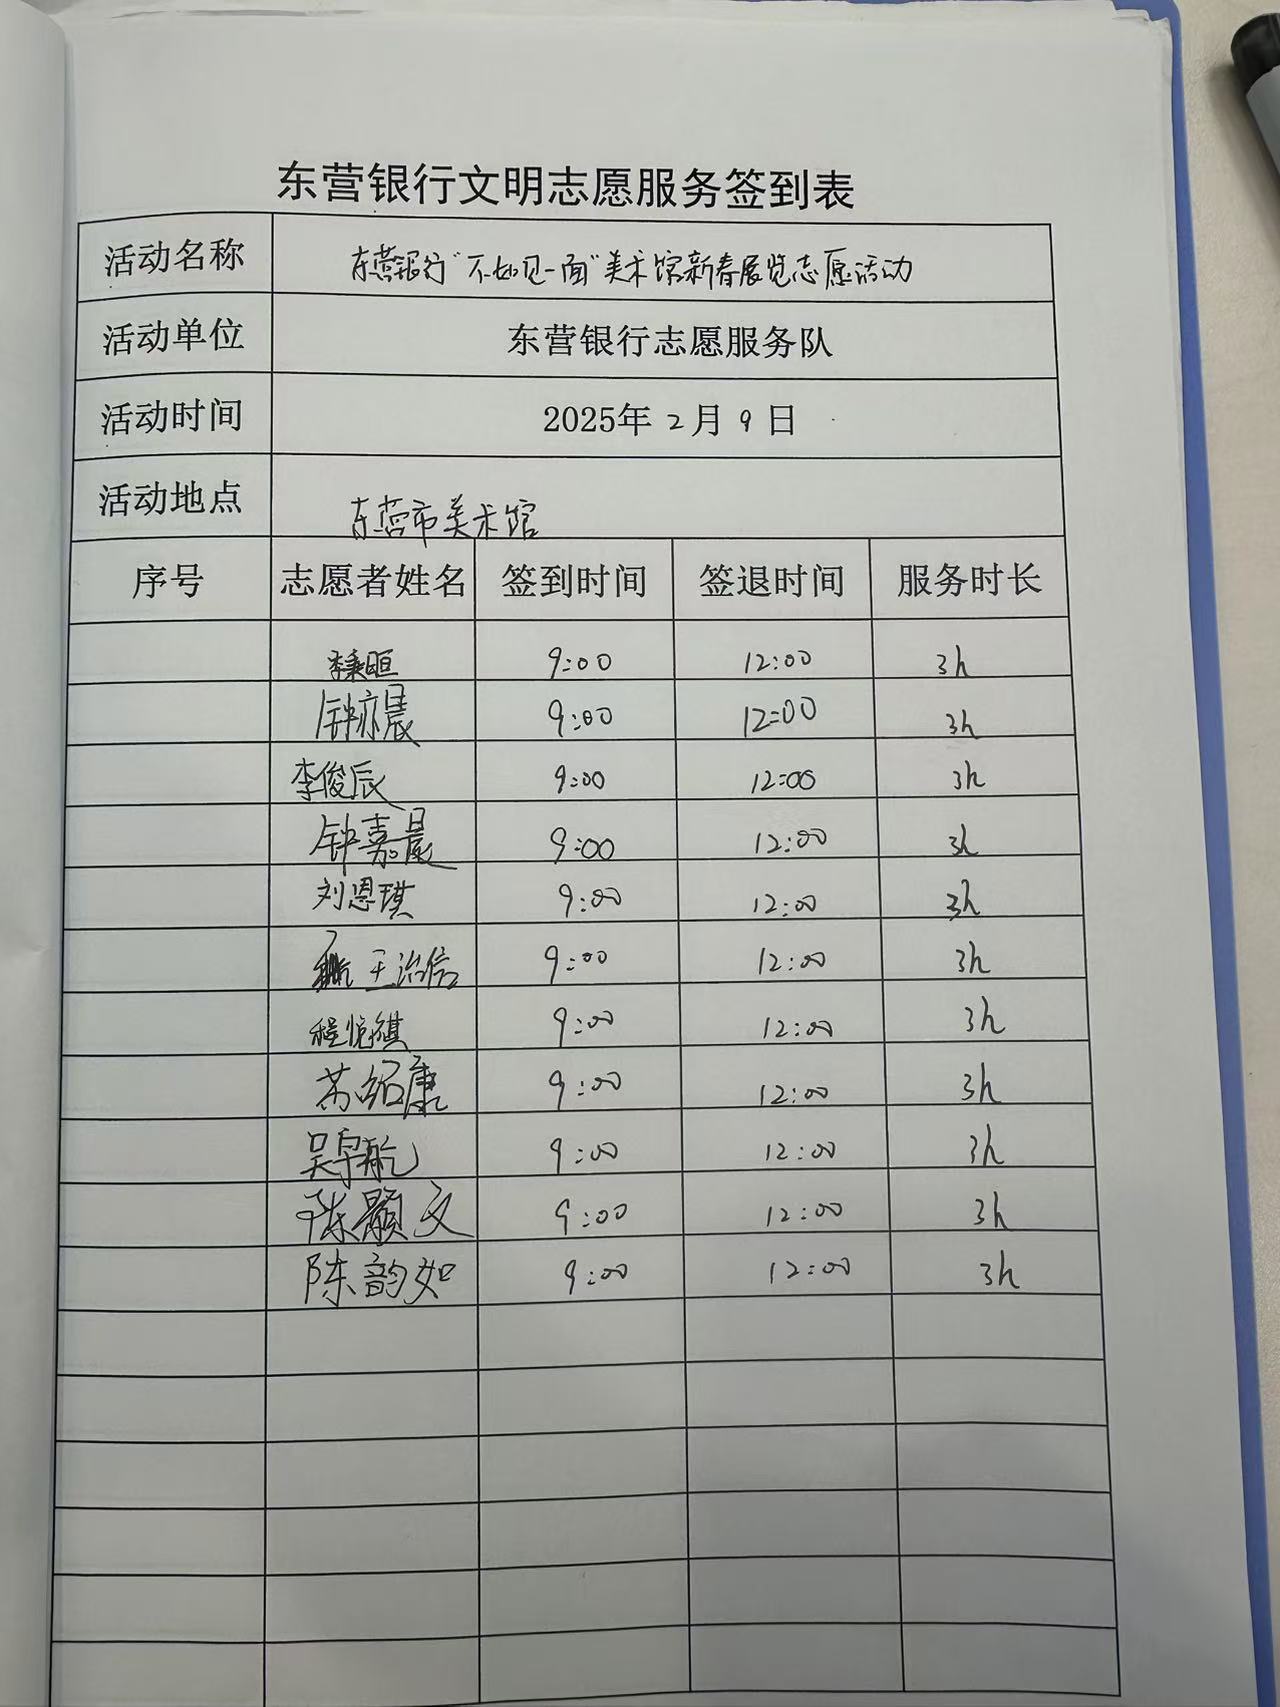 东营银行文明志愿服务签到表
活动名称 东营银行“不如见一面”美术馆新春展览志愿活动
活动单位 东营银行志愿服务队
活动时间 2025年 2 月 9 日
活动地点 东营市美术馆
序号 志愿者姓名 签到时间 签退时间 服务时长
李秉晅 9:00 12:00 3h
钟亦晨 9:00 12:00 3h
李俊辰 9:00 12:00 3h
钟嘉晨 9:00 12:00 3h
刘恩琪 9:00 12:00 3h
王治信 9:00 12:00 3h
程悦祺 9:00 12:00 3h
苏绍康 9:00 12:00 3h
吴宇航 9:00 12:00 3h
陈颢文 9:00 12:00 3h
陈韵如 9:00 12:00 3h